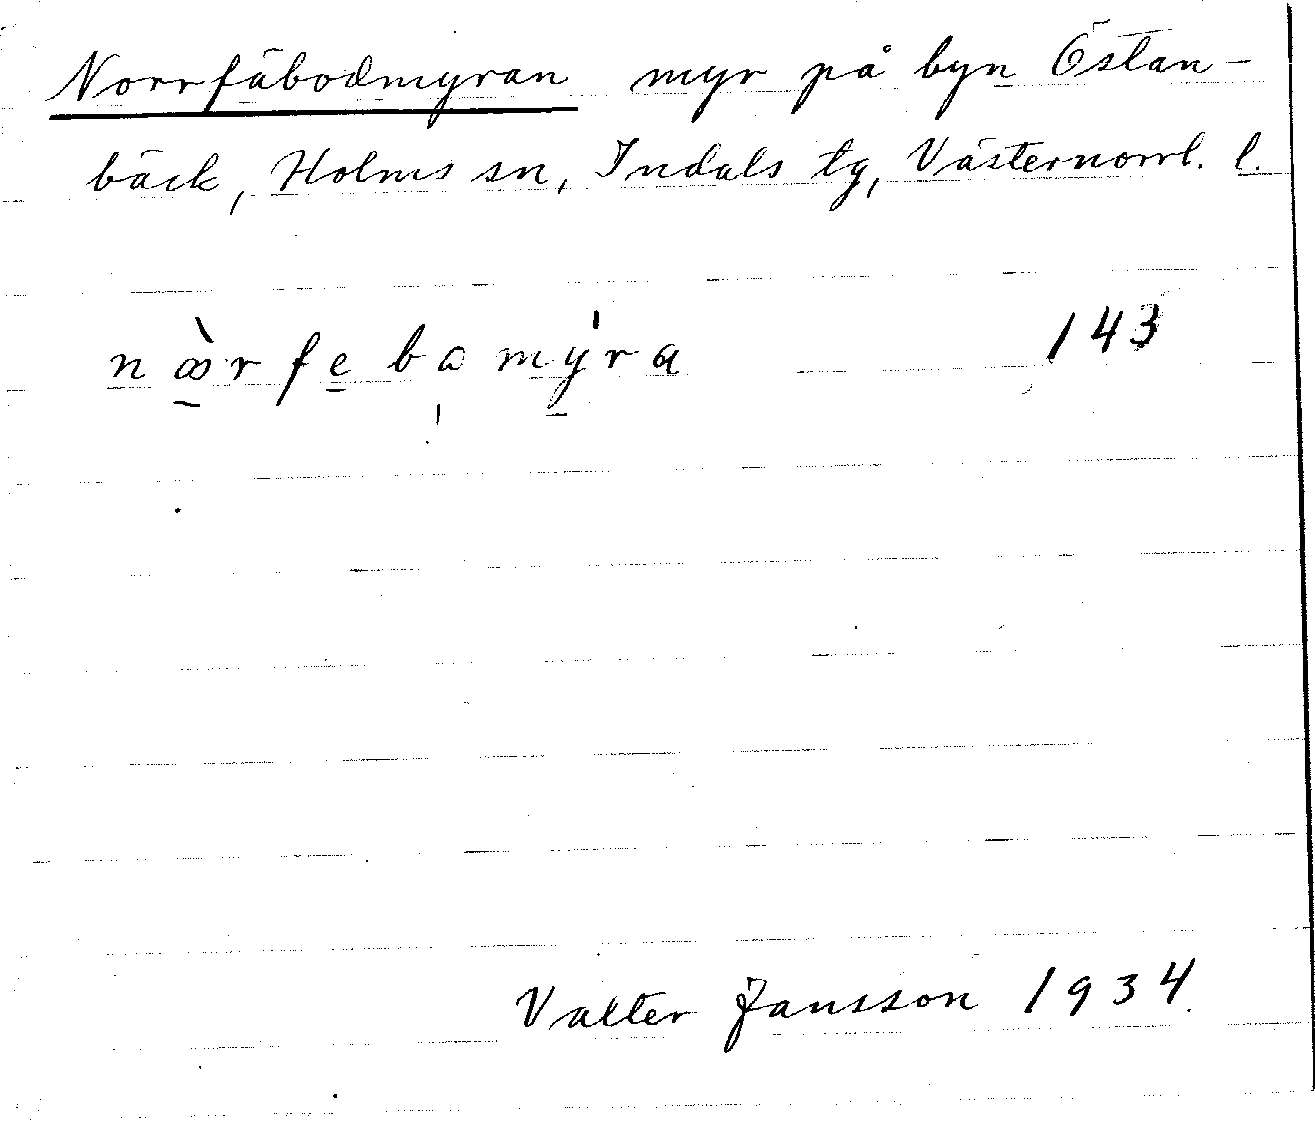 Norrfäbodmyran myr på byn Östan-
bäck, Holms sn, Indals tg, Västernorrl. l.
nœ̀rfebamýra 143
Valter Jansson 1934